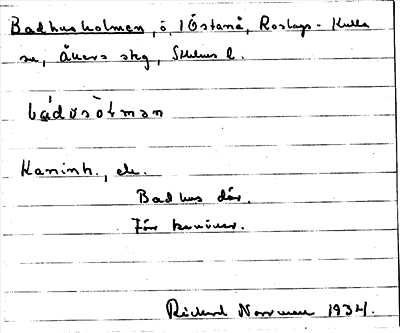 Badhusholmen, ö, i Östanå, Roslags-Kulla
sn, Åkers skg, Sthlms l.
bádusòlmən
Kaninh., de.
Badhus där.
För kaniner.
Rickard Norrman 1934.